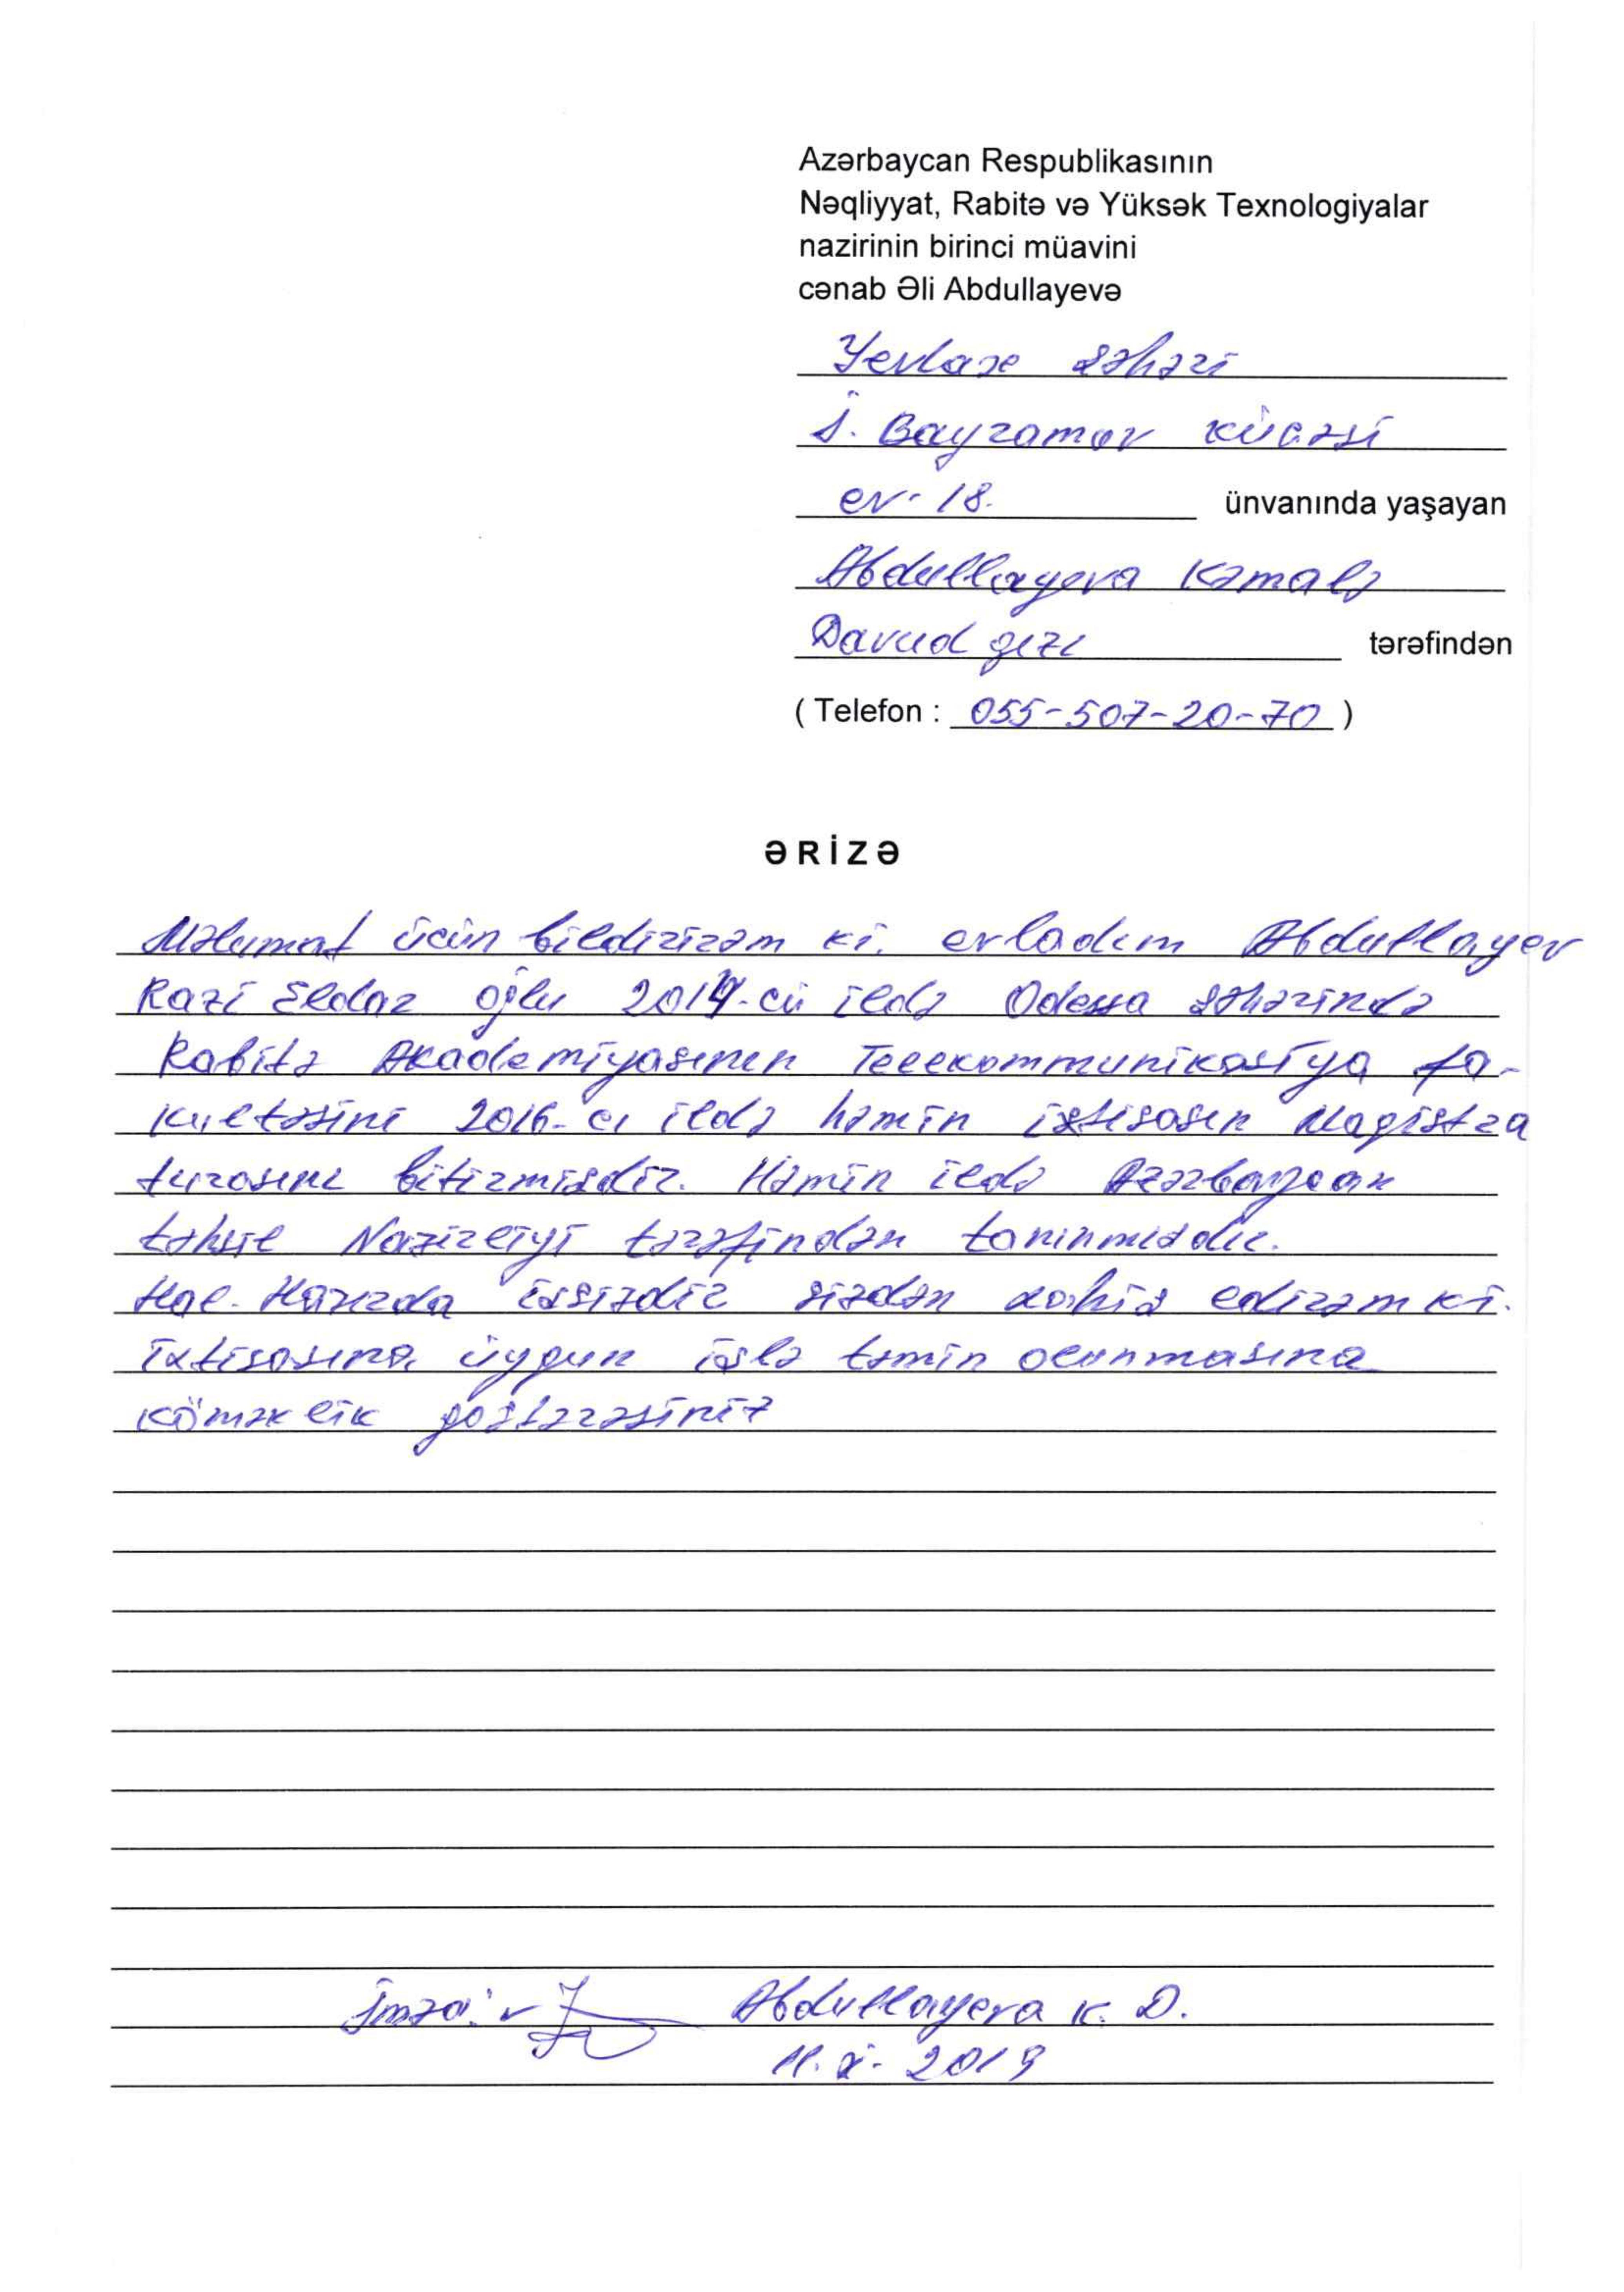 Azərbaycan Respublikasının
Nəqliyyat, Rabitə və Yüksək Texnologiyalar
nazirinin birinci müavini
cənab Əli Abdullayevə
Yevlax şəhəri
İ. Bayramov küçəsi
ev- 18. ünvanında yaşayan
Abdullayeva Kəmalə
Davud qızı tərəfindən
( Telefon : 055-507-20-70 )
ƏRİZƏ
Məlumat üçün bildirirəm ki. evladım Abdullayev
Razi Eldar oğlu 2014-cü ildə Odessa şəhərində
Rabitə Akademiyasının Telekommunikasiya fa-
kultəsini 2016-cı ildə həmin ixtisasın Magistra
turasını bitirmişdir. Həmin ildə Azərbaycan
təhsil Nazirliyi tərəfindən tanınmışdır.
Hal-Hazırda işsizdir sizdən xahiş edirəm ki.
ixtisasına uyğun işlə təmin olunmasına
köməklik göstərəsiniz
İmza: Abdullayeva K. D.
11. X. 2019